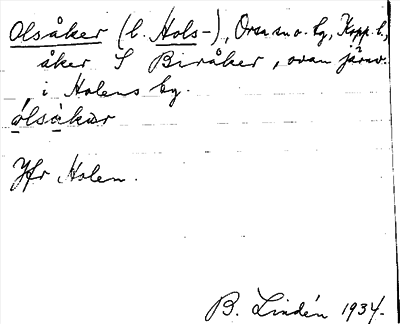 Olsåker (l. Hols-), Orsa sn o. tg, Kopp. l.,
åker S Biråker, ovan järnv.
i Holens by.
òlsàkär
Jfr Holen.
B. Lindén 1934.